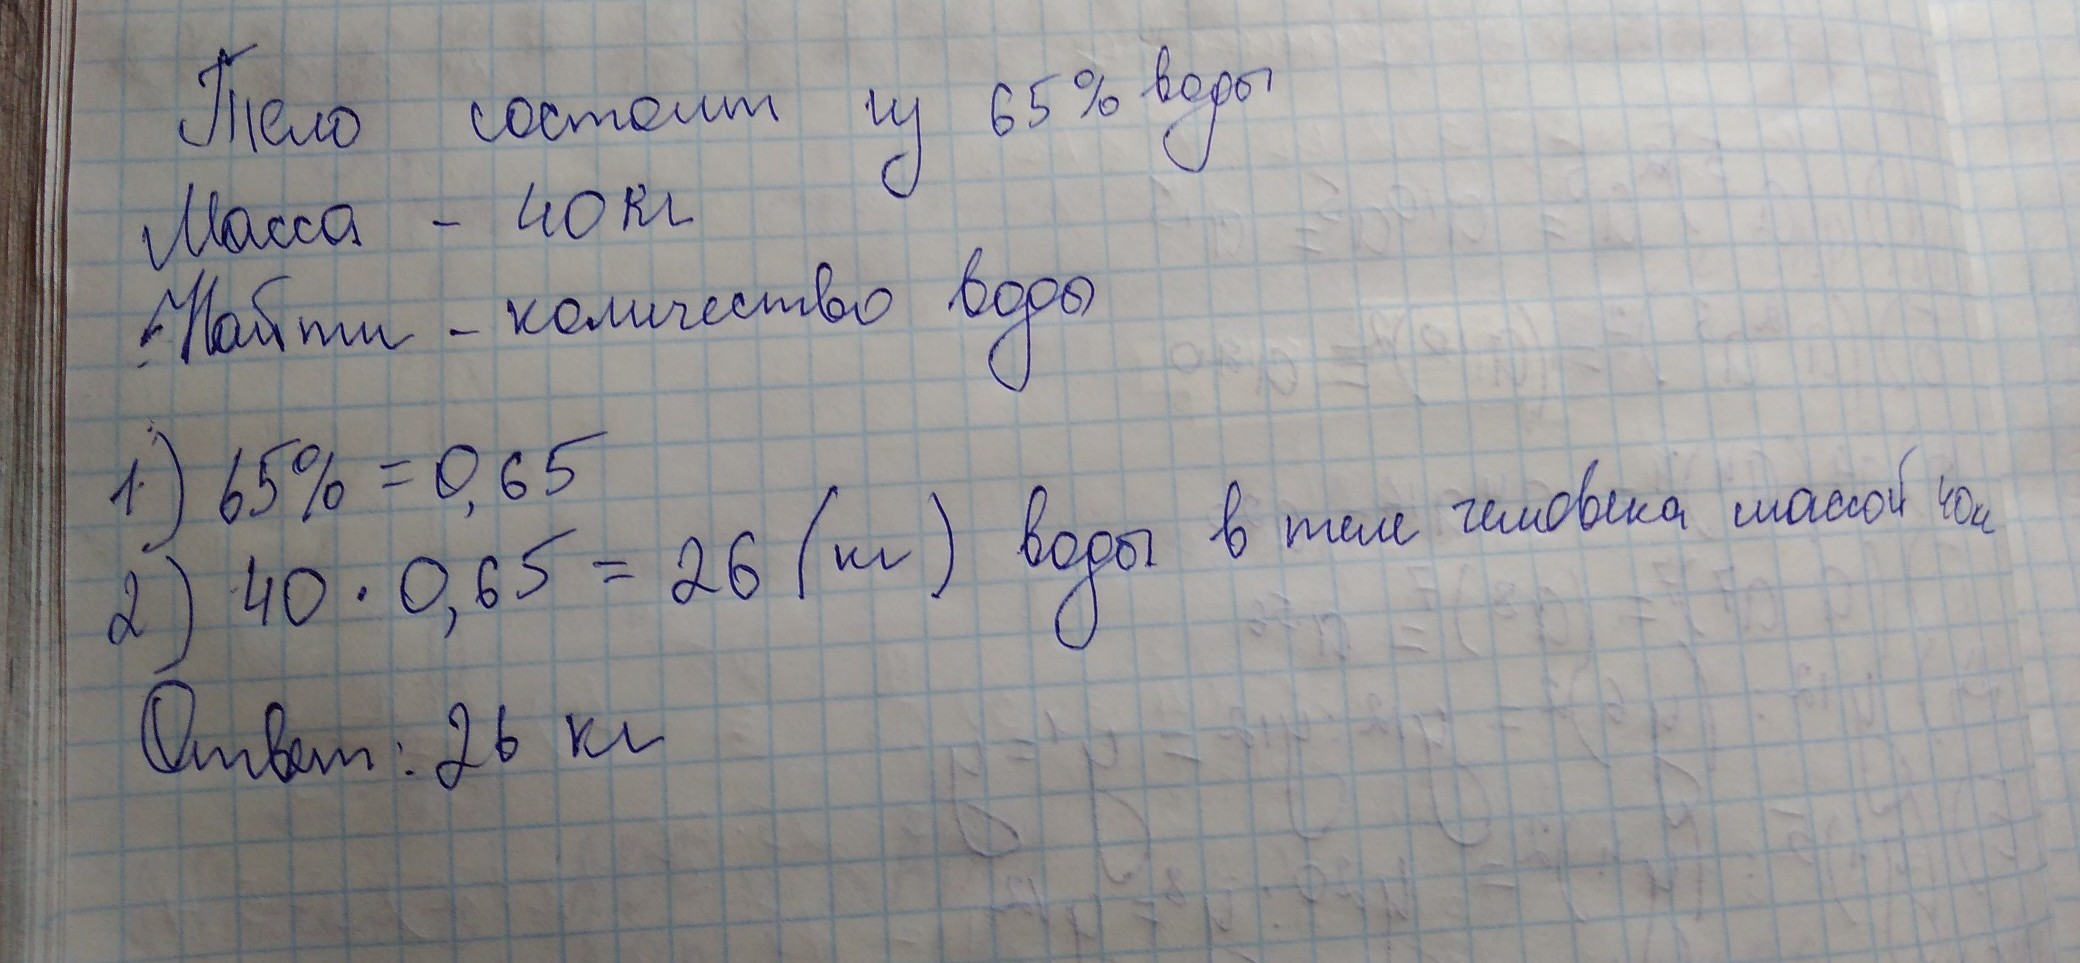 Тело состоит из 65% воды
Масса - 40 кг
Найти - количество воды
1) 65% = 0,65
2) 40 · 0,65 = 26 (кг) воды в теле человека массой 40к
Ответ: 26 кг